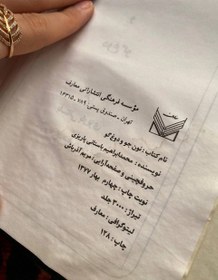 مؤسسه فرهنگی انتشاراتی معارف
تهران ـ صندوق پستی: ۷۸۹ـ۱۶۳۱۵
نام کتاب: نون جو و دوغ گو
نویسنده: محمدابراهیم باستانی پاریزی
حروفچینی و صفحه‌آرایی: مریم آذرپاش
نوبت چاپ: چهارم بهار ۱۳۷۷
تیراژ: ۳۰۰۰ جلد
لیتوگرافی: معارف
چاپ: ۱۲۸